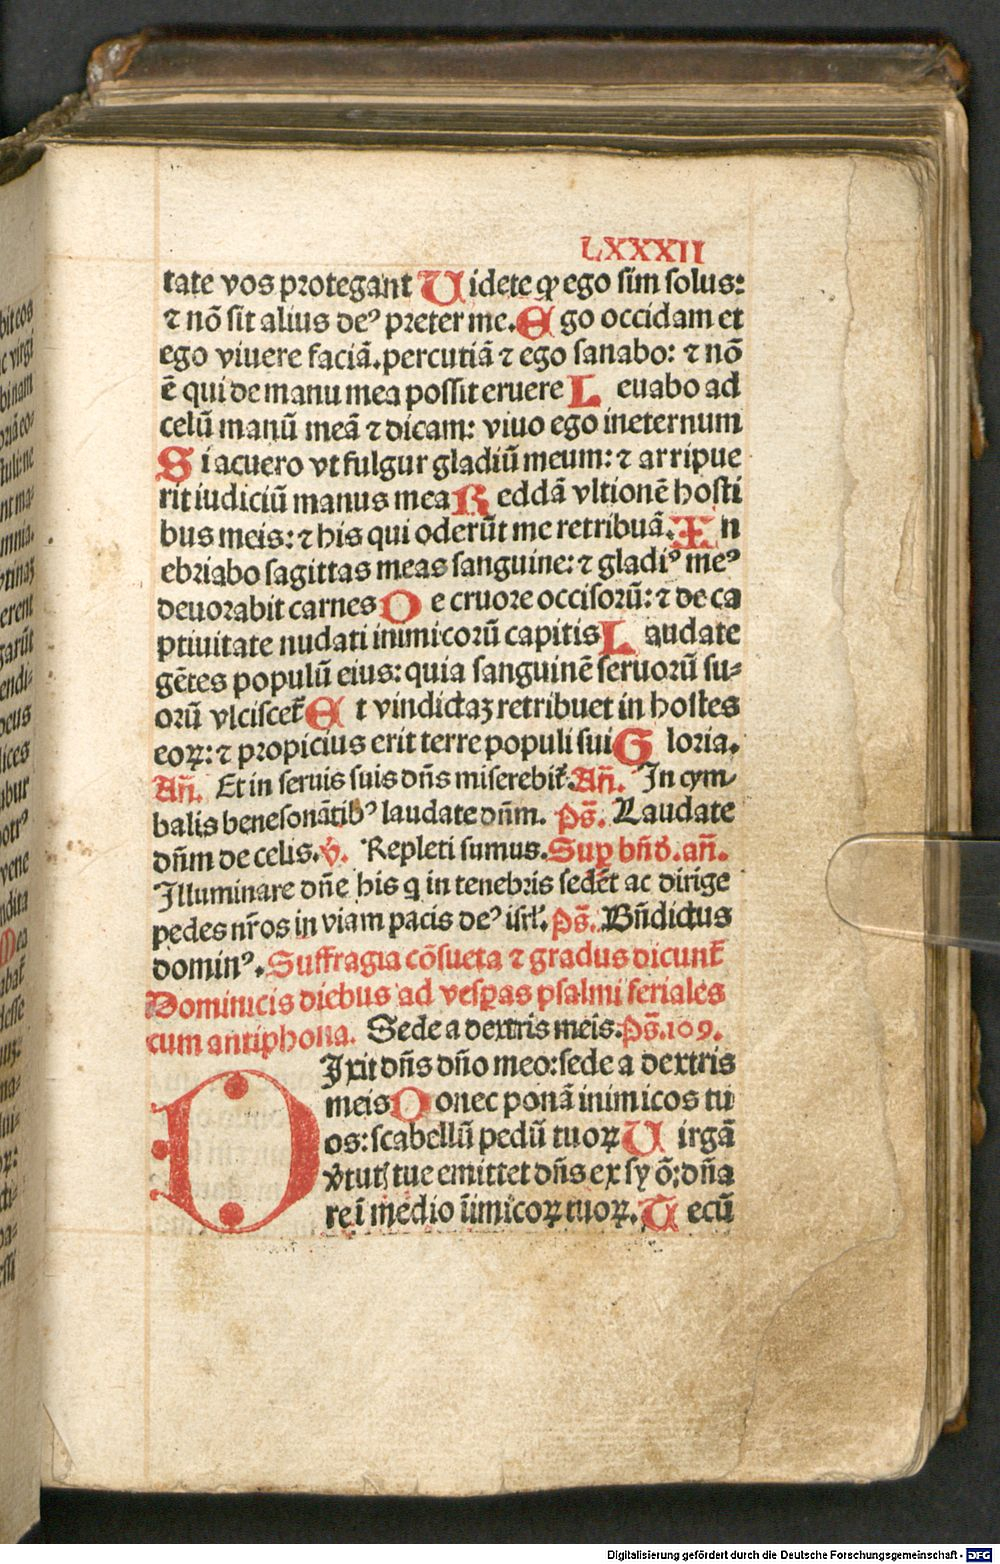 LXXXII
tate vos protegant Uidete ꝙ ego sim solus:
⁊ nō sit alius deꝰ preter me. Ego occidam et
ego viuere faciā. percutiā ⁊ ego sanabo: ⁊ nō
ē qui de manu mea possit eruere Leuabo ad
celū manū meā ⁊ dicam: viuo ego ineternum
Si acuero vt fulgur gladiū meum: ⁊ arripue
rit iudiciū manus mea Reddā vltionē hosti
bus meis: ⁊ his qui oderūt me retribuā. In
ebriabo sagittas meas sanguine: ⁊ gladiꝰ meꝰ
deuorabit carnes De cruore occisorū: ⁊ de ca
ptiuitate nudati inimicorū capitis Laudate
gētes populū eius: quia sanguinē seruorū su⸗
orū vlciscet̄ Et vindictaꝫ retribuet in hostes
eoꝝ: ⁊ propicius erit terre populi sui Gloria.
Añ. Et in seruis suis dñs miserebit̄. Añ. In cym⸗
balis benesonātibꝰ laudate dñm. Ps̄. Laudate
dñm de celis. v̄. Repleti sumus. Suꝑ bñd̄. añ.
Illuminare dñe his q in tenebris sedēt ac dirige
pedes nr̄os in viam pacis deꝰ isrl̓. Ps̄. Bñdictus
dominꝰ. Suffragia cōsueta ⁊ gradus dicunt̄
Dominicis diebus ad vesꝑas psalmi feriales
cum antiphona. Sede a dextris meis. Ps̄. 109.
Dixit dñs dño meo: sede a dextris
meis Donec ponā inimicos tu
os: scabellū pedū tuoꝝ Uirgā
v̓tut̓ tue emittet dñs ex syō: dña
re ī medio īimicoꝝ tuoꝝ. Tecū
bit eos
ꝰ
Digitalisierung gefördert durch die Deutsche Forschungsgemeinschaft - DFG